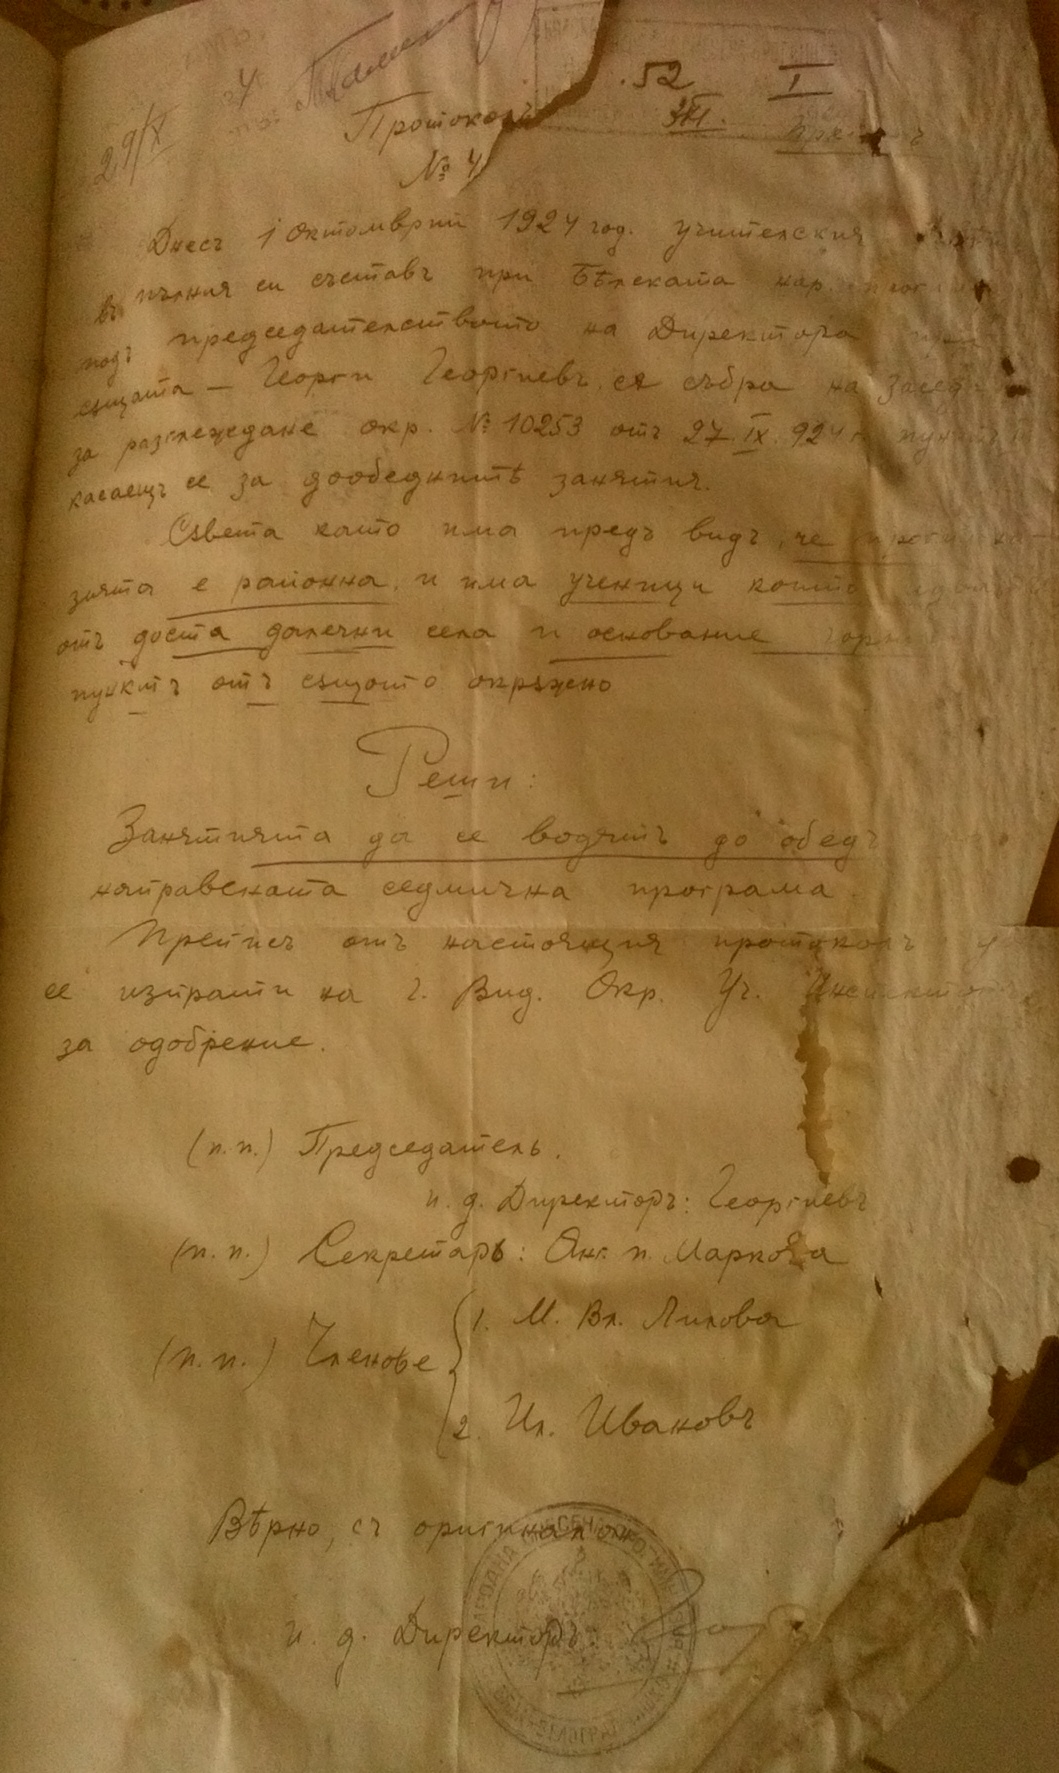 29/X
52 I
Протоколъ
№ 4
Днесъ 1 Октомврий 1924 год. учителския
въ пълния си съставъ при Бѣлската нар.
подъ председателството на Директора
сѫщата — Георги Георгиевъ, се събра на
за разглеждане окр. № 10253 отъ 27.IX.924 г. пунктъ
касаещъ се за дообеднитѣ занятия.
Съвета като има предъ видъ, че
зията е районна и има ученици които
отъ доста далечни села и основание
пунктъ отъ сѫщото окрѫжно
Реши:
Занятията да се водятъ до обедъ
направената седмична програма.
Преписъ отъ настоящия протоколъ
се изпрати на г. Вид. Окр. Уч. Инспекторъ
за одобрение.
(п.п.) Председатель.
и. д. Директоръ: Георгиевъ
(п.п.) Секретарь: Анг. п. Маркова
(п.п.) Членове { 1. М. Вл. Лилова
2. Ил. Ивановъ
Вѣрно, съ оригинала
и. д. Директоръ: